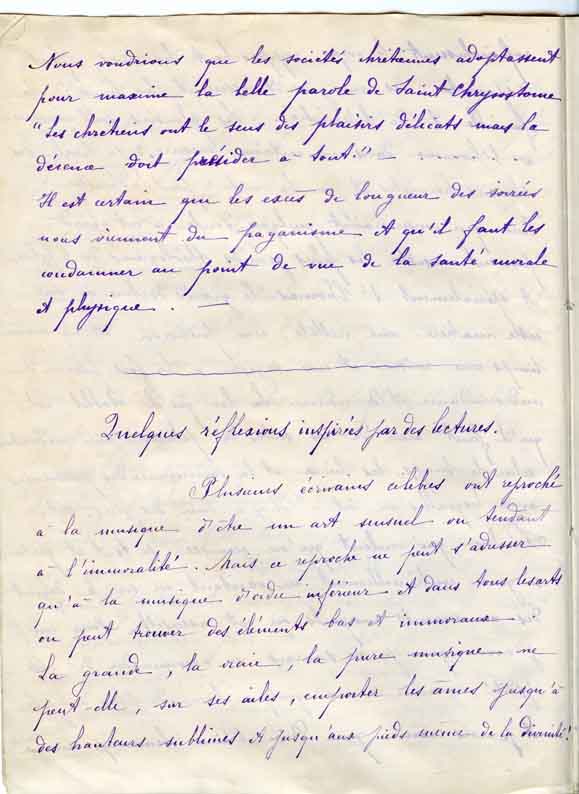 Nous voudrions que les sociétés chrétiennes adoptassent
pour maxime la belle parole de Saint Chrysostome
"Les chrétiens ont le sens des plaisirs délicats mais la
décence doit présider à tout."
Il est certain que les excès de longueur des soirées
nous viennent du paganisme et qu'il faut les
condamner au point de vue de la santé morale
et physique. —
Quelques réflexions inspirées par des lectures.
Plusieurs écrivains célèbres ont reproché
à la musique d'être un art sensuel ou tendant
à l'immoralité. Mais ce reproche ne peut s'adresser
qu'à la musique d'ordre inférieur et dans tous les arts
on peut trouver des éléments bas et immoraux.
La grande, la vraie, la pure musique ne
peut elle, sur ses ailes, emporter les âmes jusqu'à
des hauteurs sublimes et jusqu'aux pieds même de la divinité!